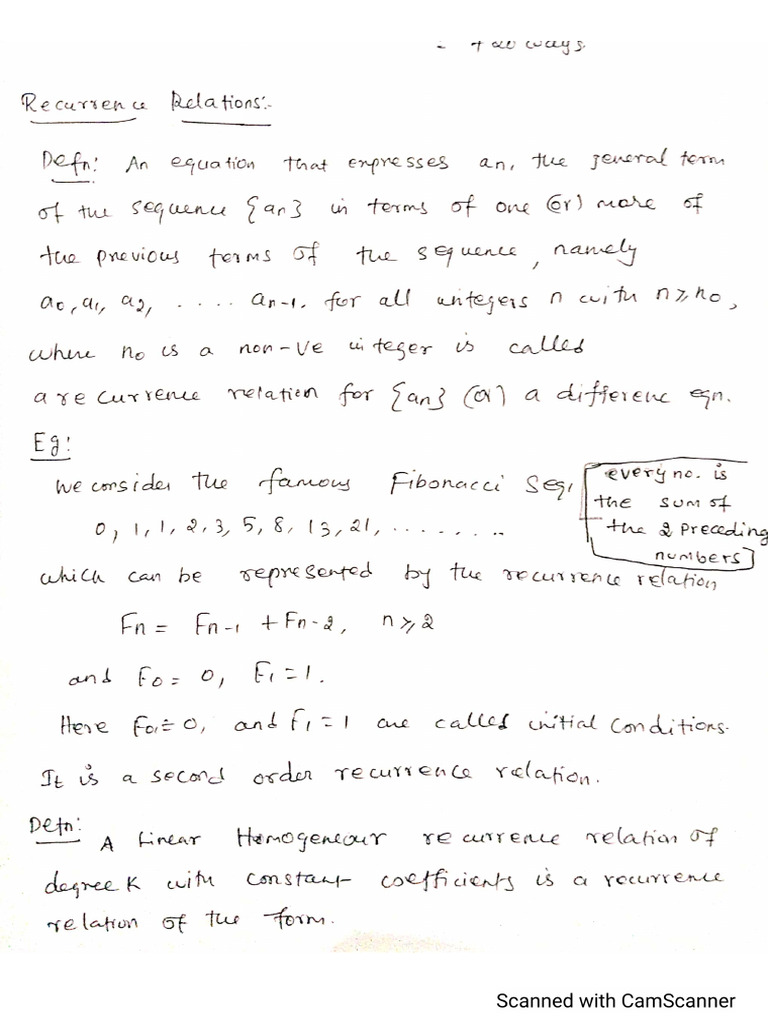 = +20 ways.
Recurrence Relations:-
Defn: An equation that expresses an, the general term
of the sequence {an} in terms of one (or) more of
the previous terms of the sequence, namely
a0, a1, a2, ..... an-1. for all integers n with n ≥ n0,
where n0 is a non-ve integer is called
a recurrence relation for {an} (or) a difference eqn.
Eg:
We consider the famous Fibonacci Seq,
[every no. is
the sum of
the 2 preceding
numbers]
0, 1, 1, 2, 3, 5, 8, 13, 21, ........
which can be represented by the recurrence relation
Fn = Fn-1 + Fn-2, n ≥ 2
and F0 = 0, F1 = 1.
Here F0 = 0, and F1 = 1 are called initial conditions.
It is a second order recurrence relation.
Defn: A Linear Homogeneour recurrence relation of
degree K with constant coefficients is a recurrence
relation of the form.
Scanned with CamScanner